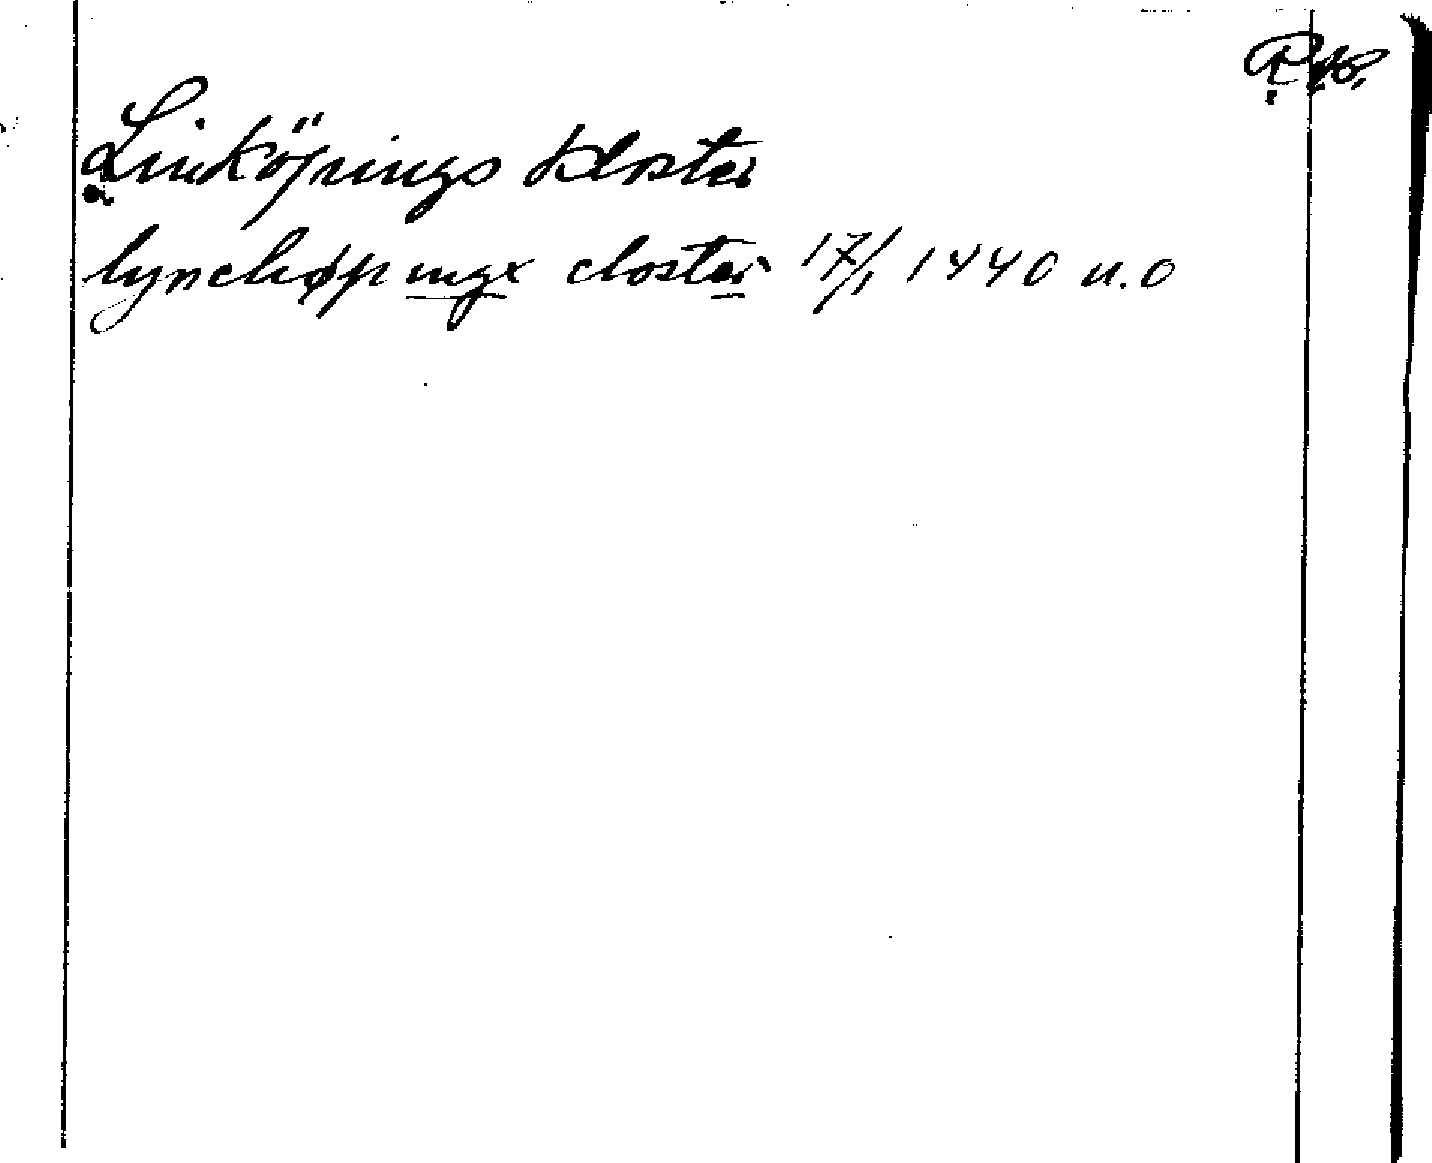 Linköpings kloster
lynchøpingx closter 17/1 1440 u.o